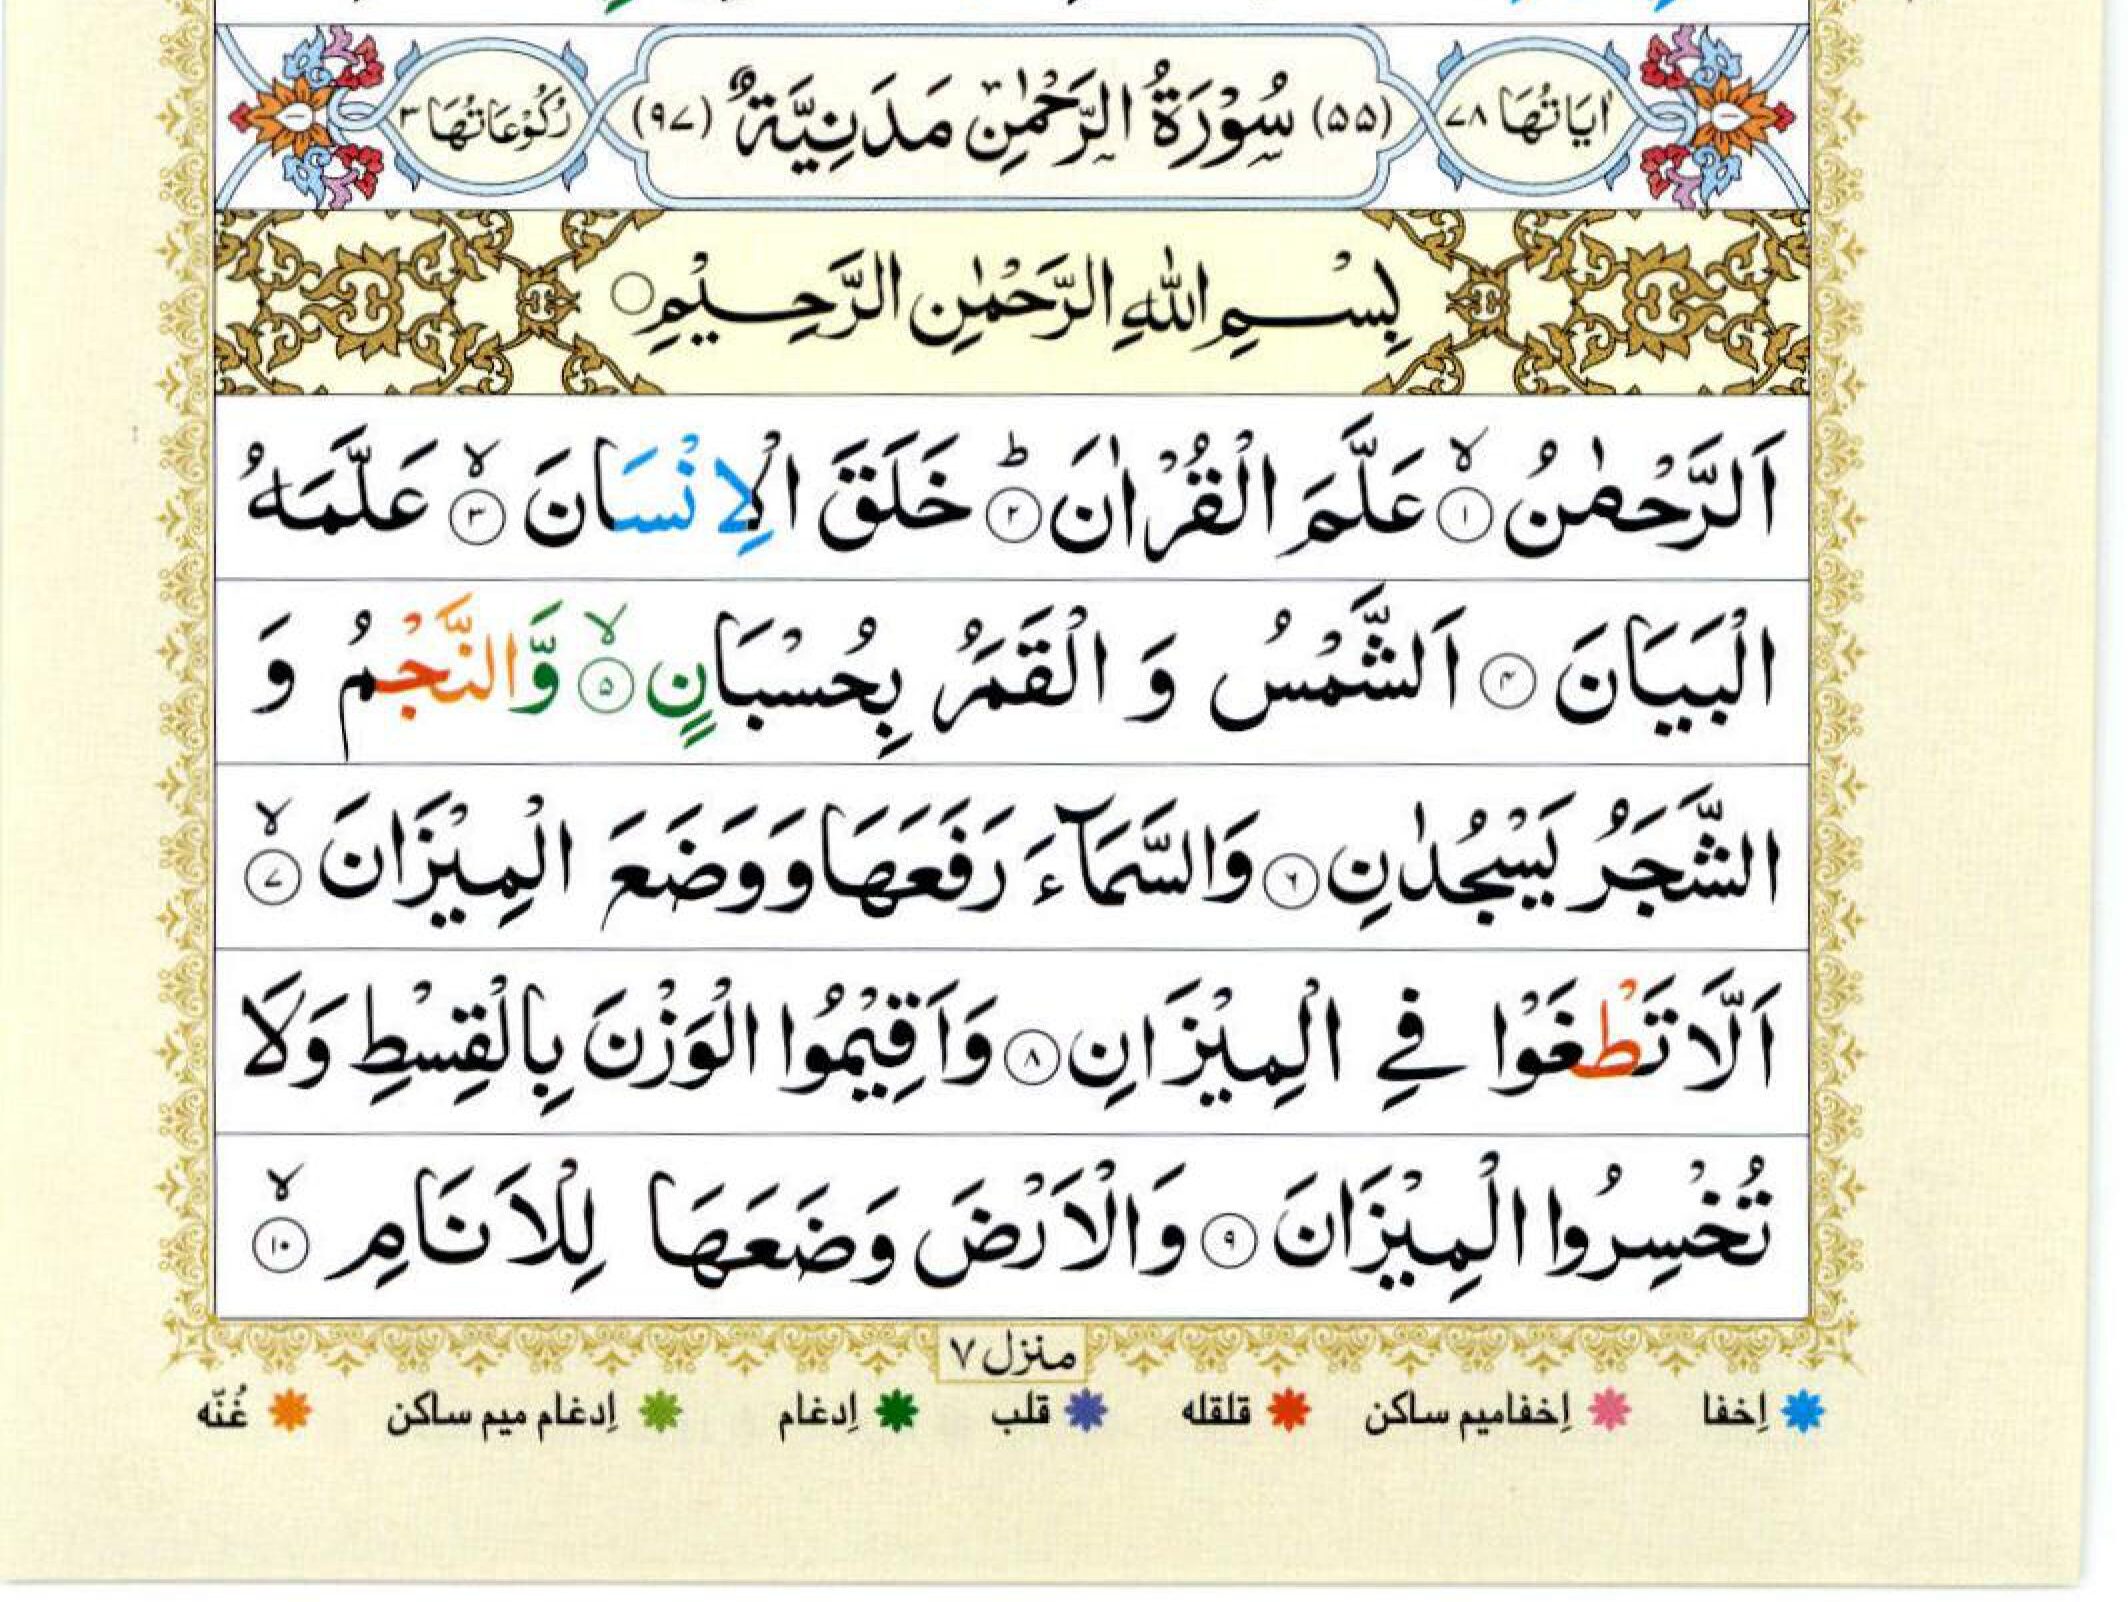 اٰيَاتُهَا ٧٨ (٥٥) سُوْرَةُ الرَّحْمٰنِ مَدَنِيَّةٌ (٩٧) رُكُوْعَاتُهَا ٣
بِسْمِ اللّٰهِ الرَّحْمٰنِ الرَّحِيْمِ○
اَلرَّحْمٰنُ ۙ﴿١﴾ عَلَّمَ الْقُرْاٰنَ ؕ﴿٢﴾ خَلَقَ الْاِنْسَانَ ۙ﴿٣﴾ عَلَّمَهُ
الْبَيَانَ ﴿٤﴾ اَلشَّمْسُ وَ الْقَمَرُ بِحُسْبَانٍ ۙ﴿٥﴾ وَّالنَّجْمُ وَ
الشَّجَرُ يَسْجُدٰنِ ﴿٦﴾ وَالسَّمَآءَ رَفَعَهَا وَوَضَعَ الْمِيْزَانَ ۙ﴿٧﴾
اَلَّا تَطْغَوْا فِي الْمِيْزَانِ ﴿٨﴾ وَاَقِيْمُوا الْوَزْنَ بِالْقِسْطِ وَلَا
تُخْسِرُوا الْمِيْزَانَ ﴿٩﴾ وَالْاَرْضَ وَضَعَهَا لِلْاَنَامِ ۙ﴿١٠﴾
منزل ٧
اِخفا اِخفامیم ساکن قلقله قلب اِدغام اِدغام میم ساکن غُنّه